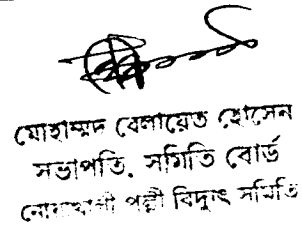 মোহাম্মদ বেলায়েত হোসেন
সভাপতি, সমিতি বোর্ড
নোয়াখালী পল্লী বিদ্যুৎ সমিতি